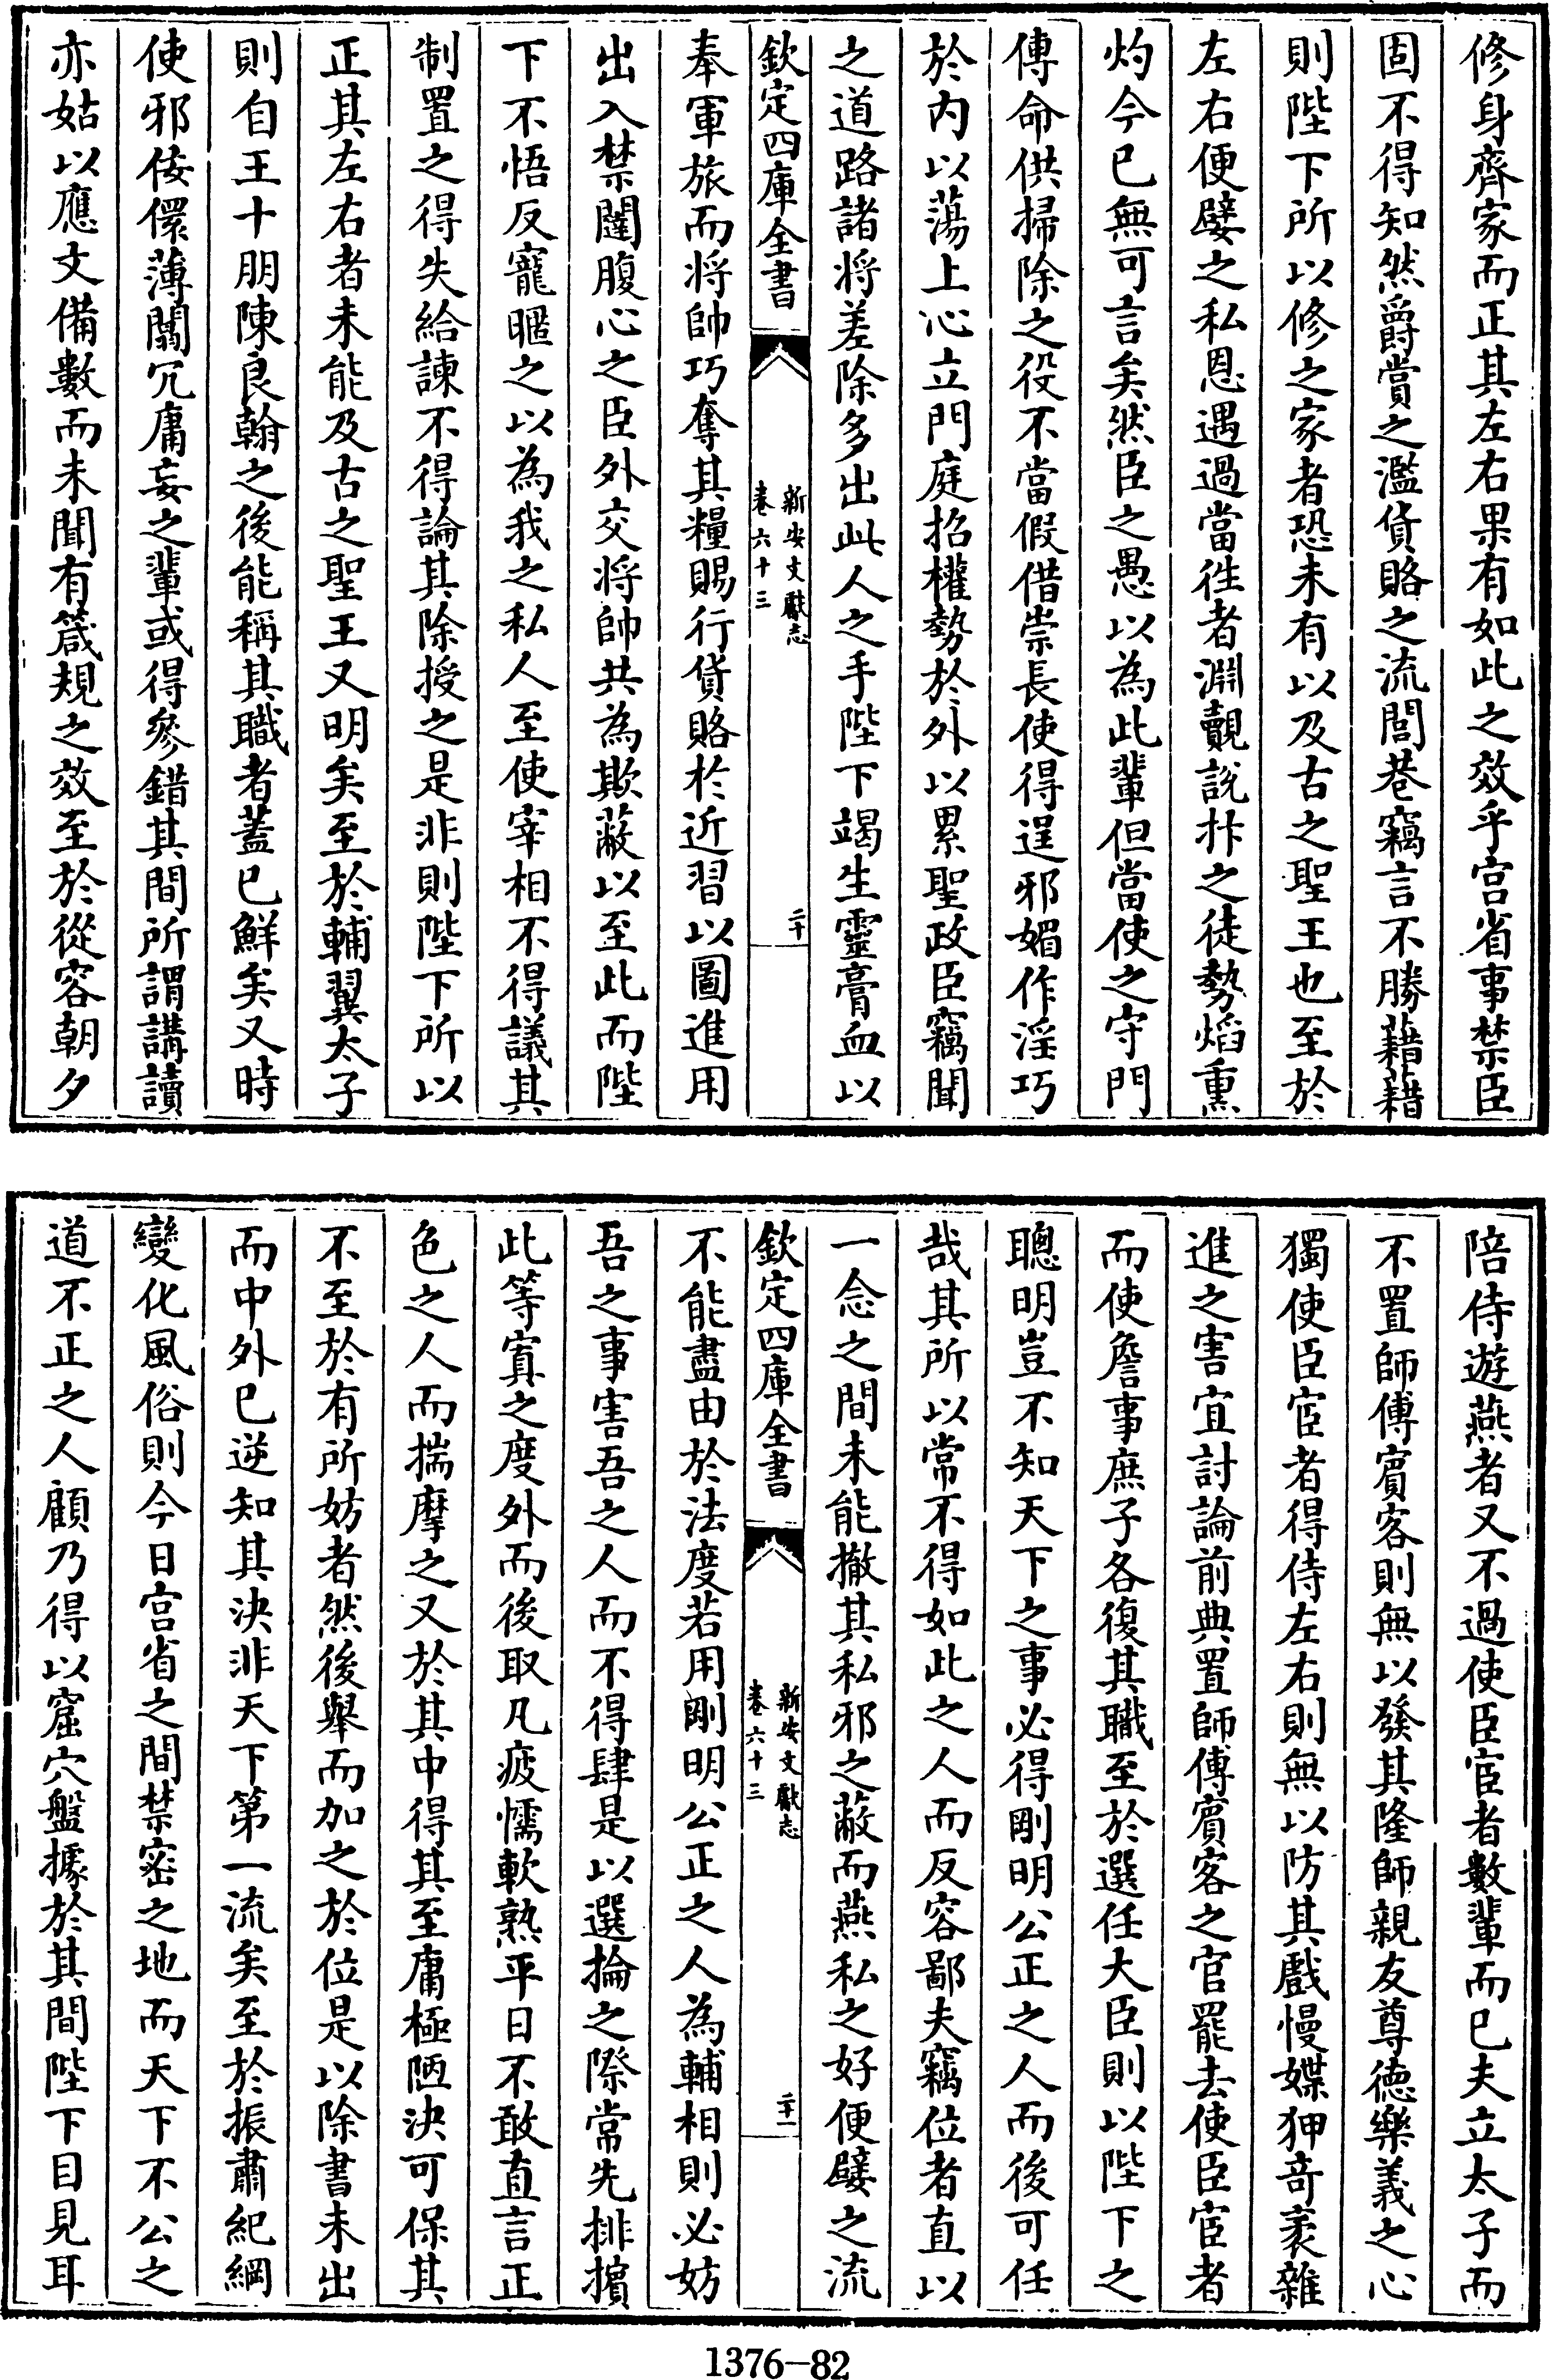 修身齊家而正其左右果有如此之效乎宫省事禁臣
固不得知然爵賞之濫貨賂之流閭巷竊言不勝藉藉
則陛下所以修之家者恐未有以及古之聖王也至於
左右便嬖之私恩遇過當徃者淵覿說抃之徒勢焰熏
灼今已無可言矣然臣之愚以為此輩但當使之守門
傳命供掃除之役不當假借崇長使得逞邪媚作淫巧
於内以蕩上心立門庭招權勢於外以累聖政臣竊聞
之道路諸將差除多出此人之手陛下竭生靈膏血以
欽定四庫全書
新安文獻志
卷六十三
二十
奉軍旅而將帥巧奪其糧賜行貨賂於近習以圖進用
出入禁闥腹心之臣外交將帥共為欺蔽以至此而陛
下不悟反寵暱之以為我之私人至使宰相不得議其
制置之得失給諫不得論其除授之是非則陛下所以
正其左右者未能及古之聖王又明矣至於輔翼太子
則自王十朋陳良翰之後能稱其職者蓋已鮮矣又時
使邪佞儇薄闒冗庸妄之輩或得參錯其間所謂講讀
亦姑以應文備數而未聞有箴規之效至於從容朝夕
陪侍遊燕者又不過使臣宦者數輩而已夫立太子而
不置師傅賓客則無以發其隆師親友尊德樂義之心
獨使臣宦者得侍左右則無以防其戲慢媟狎竒袤雜
進之害宜討論前典置師傅賓客之官罷去使臣宦者
而使詹事庶子各復其職至於選任大臣則以陛下之
聰明豈不知天下之事必得剛明公正之人而後可任
哉其所以常不得如此之人而反容鄙夫竊位者直以
一念之間未能撤其私邪之蔽而燕私之好便嬖之流
欽定四庫全書
新安文獻志
卷六十三
二十一
不能盡由於法度若用剛明公正之人為輔相則必妨
吾之事害吾之人而不得肆是以選掄之際常先排擯
此等寘之度外而後取凡疲懦軟熟平日不敢直言正
色之人而揣摩之又於其中得其至庸極陋決可保其
不至於有所妨者然後舉而加之於位是以除書未出
而中外已逆知其決非天下第一流矣至於振肅紀綱
變化風俗則今日宫省之間禁密之地而天下不公之
道不正之人顧乃得以窟穴盤據於其間陛下目見耳
1376-82